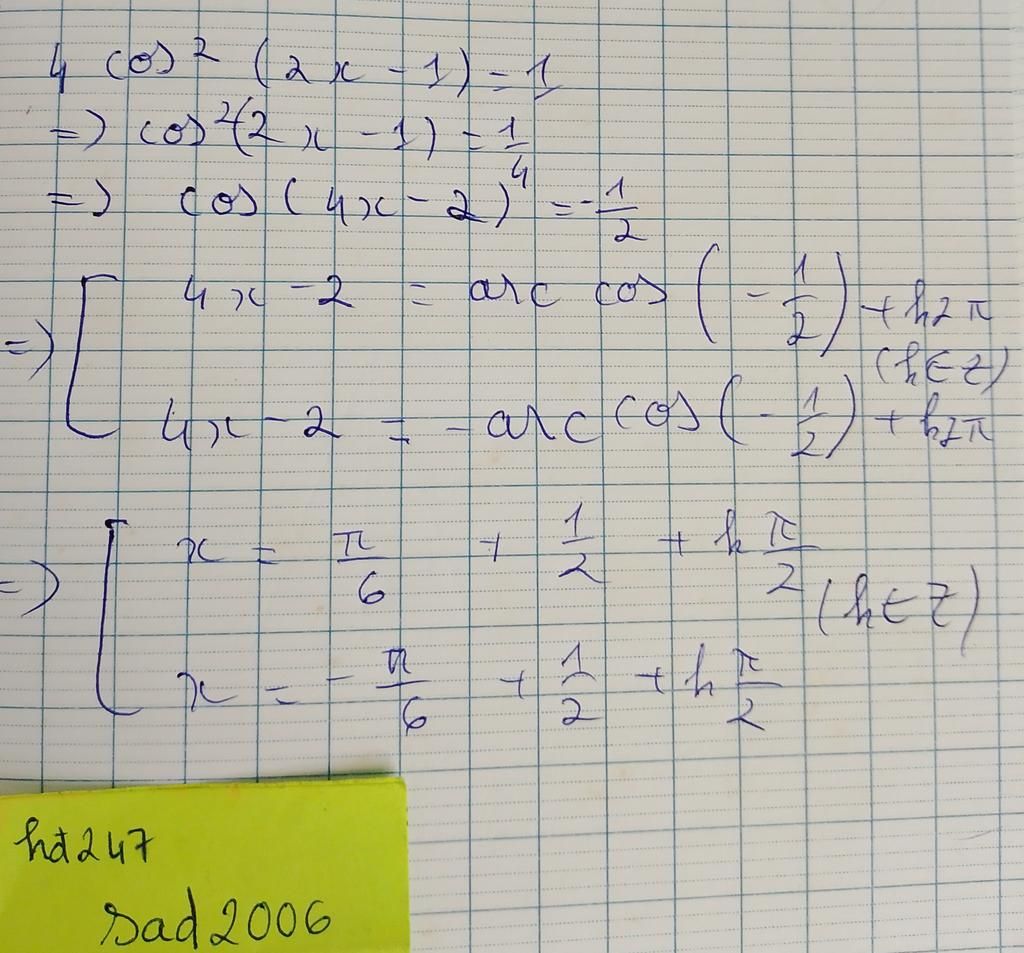 4 cos² (2x - 1) = 1
=> cos²(2x - 1) = 1/4
=> cos (4x - 2) = -1/2
=> [ 4x - 2 = arc cos (-1/2) + k2π
(k ∈ Z)
4x - 2 = - arc cos (-1/2) + k2π
=> [ x = π/6 + 1/2 + k π/2
(k ∈ Z)
x = - π/6 + 1/2 + k π/2
hđ247
sad2006